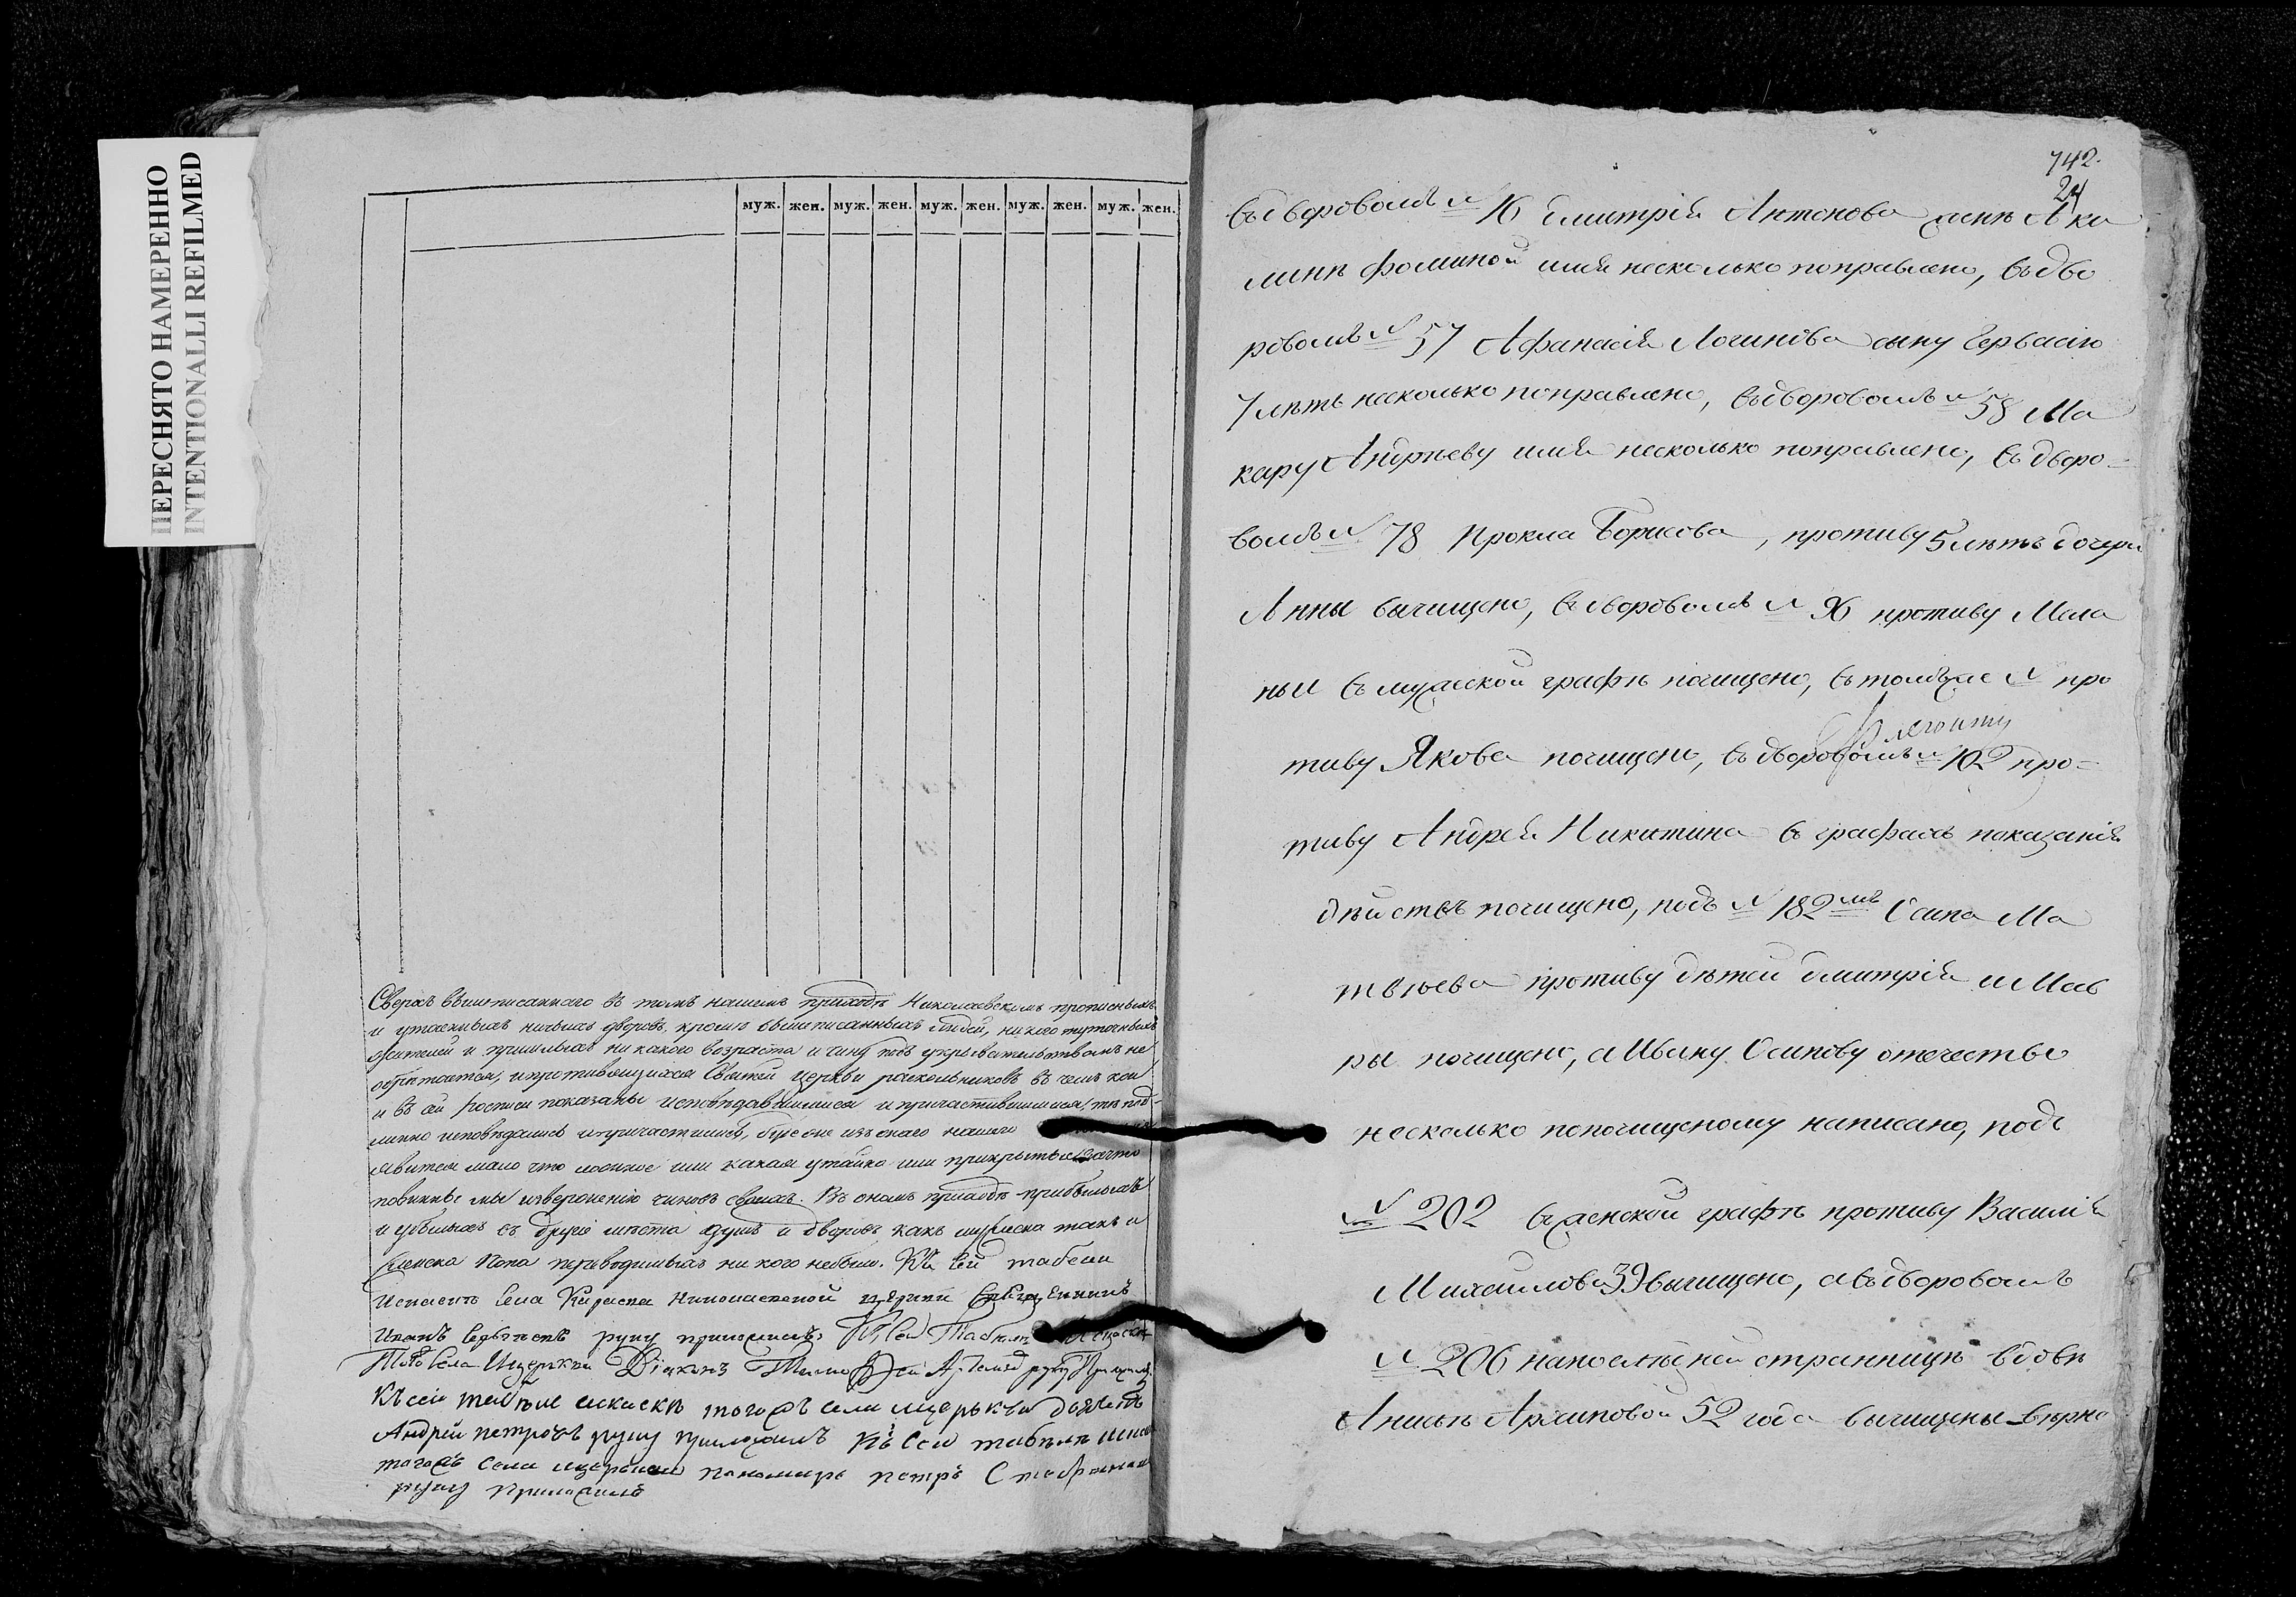 ПЕРЕСНЯТО НАМЕРЕННО
INTENTIONALLI REFILMED
муж. жен. муж. жен. муж. жен. муж. жен. муж. жен.
Сверхъ вышеписаннаго въ томъ нашемъ приходѣ Николаевскомъ прописныхъ
и утаенныхъ ничьихъ дворовъ, кромѣ вышеписанныхъ людей, ни кого тутошныхъ
жителей и пришлыхъ ни какого возраста и чина подъ укрывательствомъ не
обрѣтается, и противящихся Святей Церкви раскольниковъ въ чемъ кои
и въ сей росписи показаны исповѣдавшимися и причастившимися, тѣ под-
линно исповѣдались и причастились, буде же изъ онаго нашего
явится мало что ложное или какая утайка или прикрытые за что
повинны мы извержению чиновъ своихъ. Въ ономъ приходѣ прибылыхъ
и убылыхъ въ другіе мѣста душъ и дворовъ какъ мужеска такъ и
женска пола переводимыхъ ни кого небыло. Къ сей табели
села Николаевской церкви Священникъ
Иванъ руку приложилъ. Къ сей
Тогожъ села Ицеркви Діаконъ Тимофей руку приложилъ
Къ сей тогожъ села ицерькви дьячекъ
Андрей Петровъ руку приложилъ Къ сей табели
тогожъ села ицеркви пономарь Петръ
руку приложилъ
742.
24
въ дворовомъ № 16 Дмитрія Антонова женѣ Аку
линѣ Фоминой имя несколько поправлено, въ дво
ровомъ № 57 Афанасія Логинова сыну Гервасію
7 лѣтъ несколько поправлено, въ дворовомъ № 58 Ма
кару Андрѣеву имя несколько поправлено, въ дворо-
вомъ № 78 Прокла Борисова, противу 5 лѣтъ дочери
Анны вычищено, въ дворовомъ № 96 противу Мала
ньи въ мужеской графѣ почищено, въ томъже № про
тиву Якова почищено, въ дворовомъ № 102 про-
тиву Андрея Никитина в графахъ показанія
дѣйствъ почищено, подъ № 182мъ Осипа Ма
твѣева противу дѣтей Дмитрія и Мав
ры почищено, а Ивану Осипову отечество
несколько попочищеному написано, подъ
№ 202 въ женской графѣ противу Василія
Михаилова 39 вычищено, а въ дворовомъ
№ 206 напослѣдней странницѣ вдовѣ
Анисьѣ Архиповой 52 года вычищены вѣрно